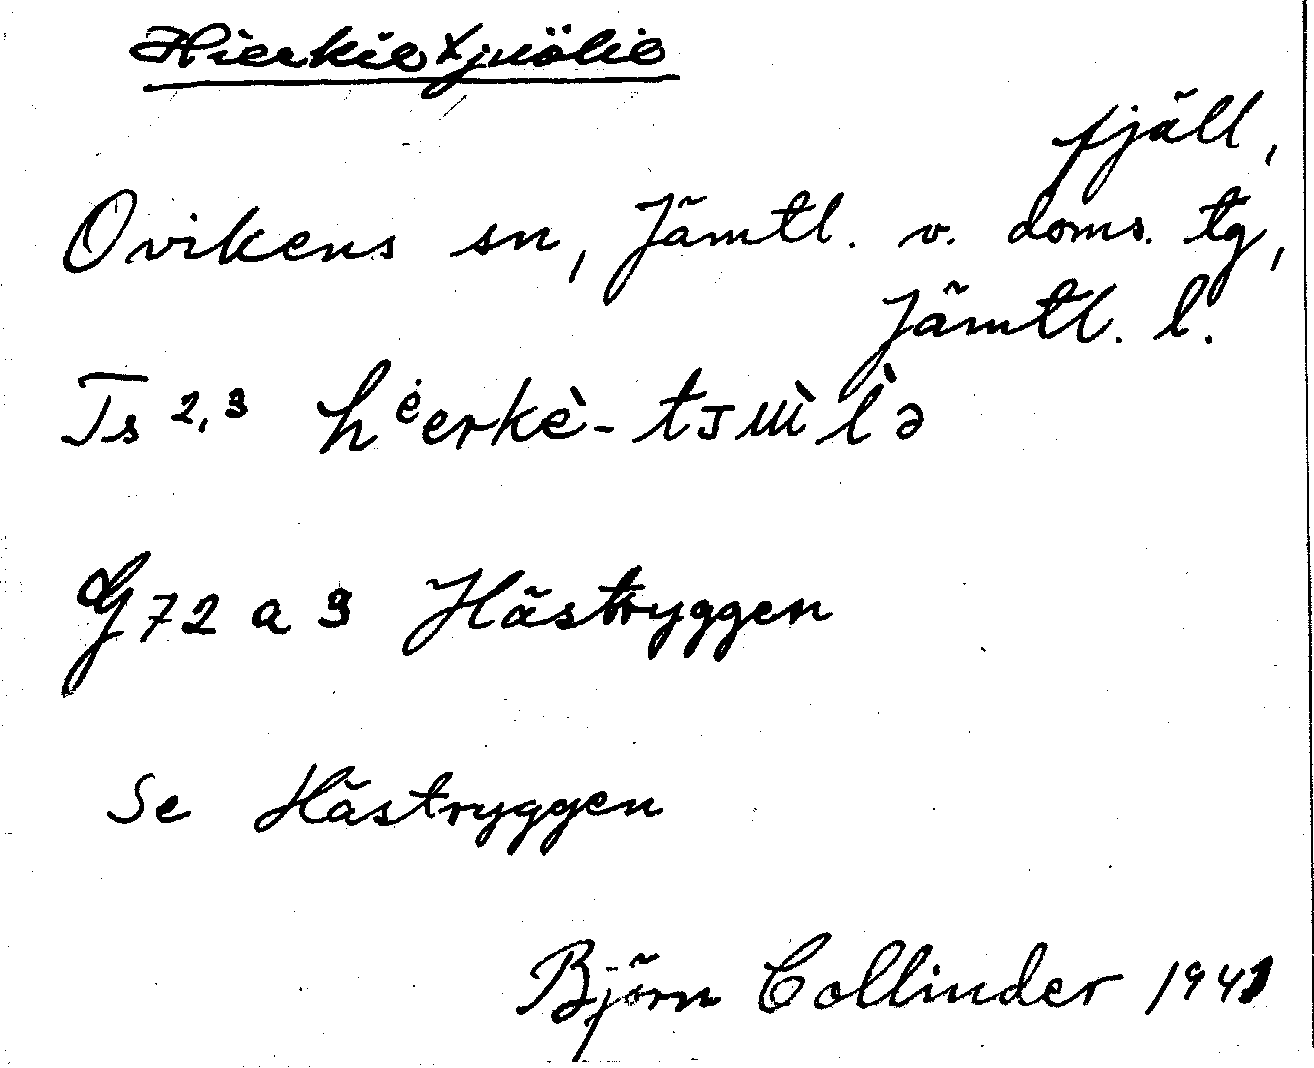 Hierkietjuölie
fjäll,
Ovikens sn, Jämtl. v. doms. tg,
Jämtl. l.
Ts 2,3
G 72 a 3 Hästryggen
Se Hästryggen
Björn Collinder 1941